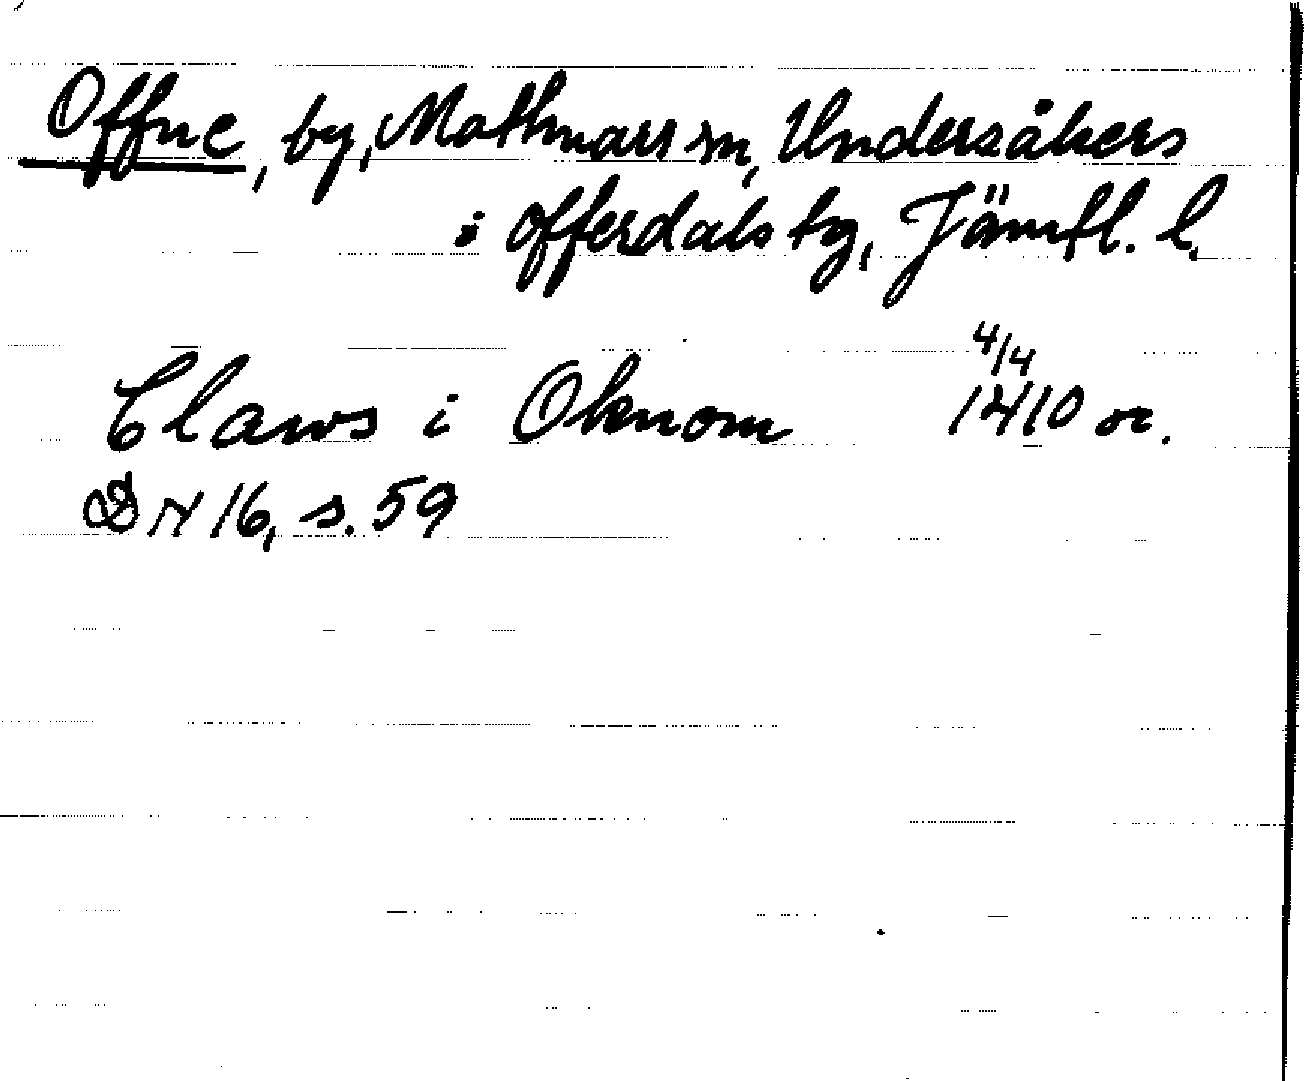 Offne, by, Mattmars sn, Undersåkers
i offerdals tg, Jämtl. l.
Claws i Oknom 4/4 1410 or.
DN 16, s. 59